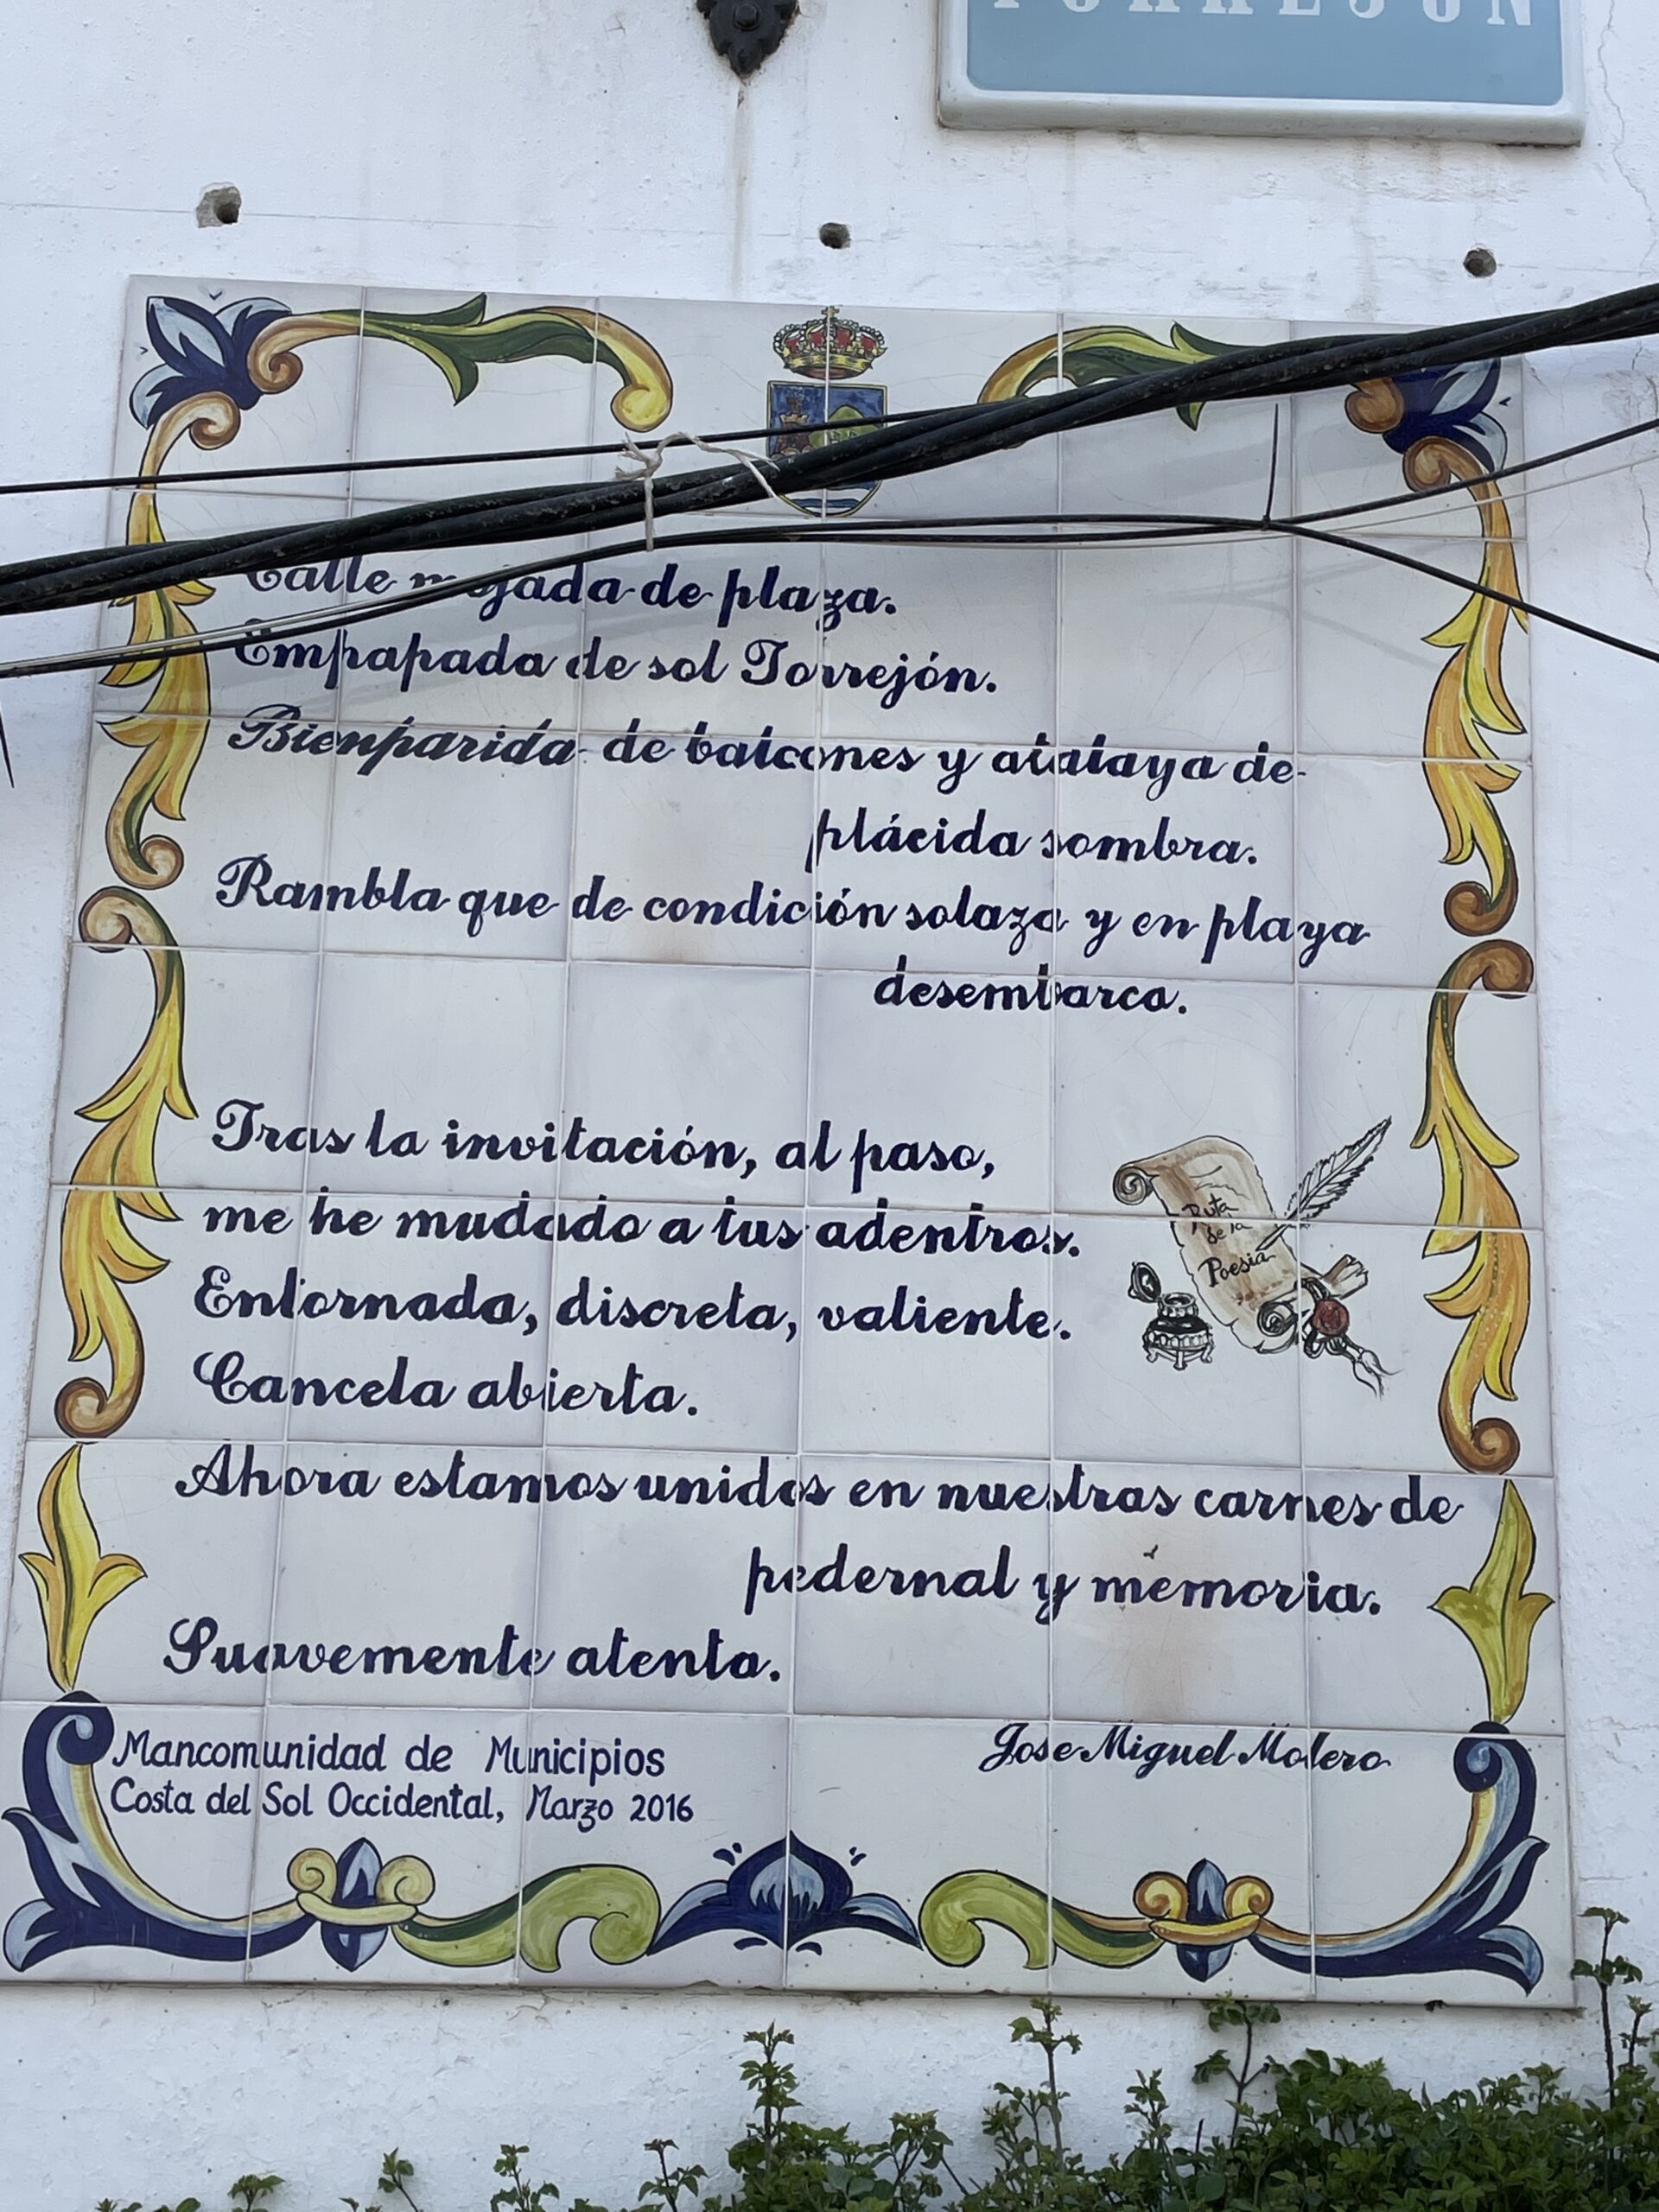 TORREJÓN
Calle mojada de plaza.
Empapada de sol Torrejón.
Bienparida de balcones y atalaya de
plácida sombra.
Rambla que de condición solaza y en playa
desembarca.
Tras la invitación, al paso,
me he mudado a tus adentros.
Entornada, discreta, valiente.
Cancela abierta.
Ruta
de la
Poesia
Ahora estamos unidos en nuestras carnes de
pedernal y memoria.
Suavemente atenta.
Jose Miguel Molero
Mancomunidad de Municipios
Costa del Sol Occidental, Marzo 2016